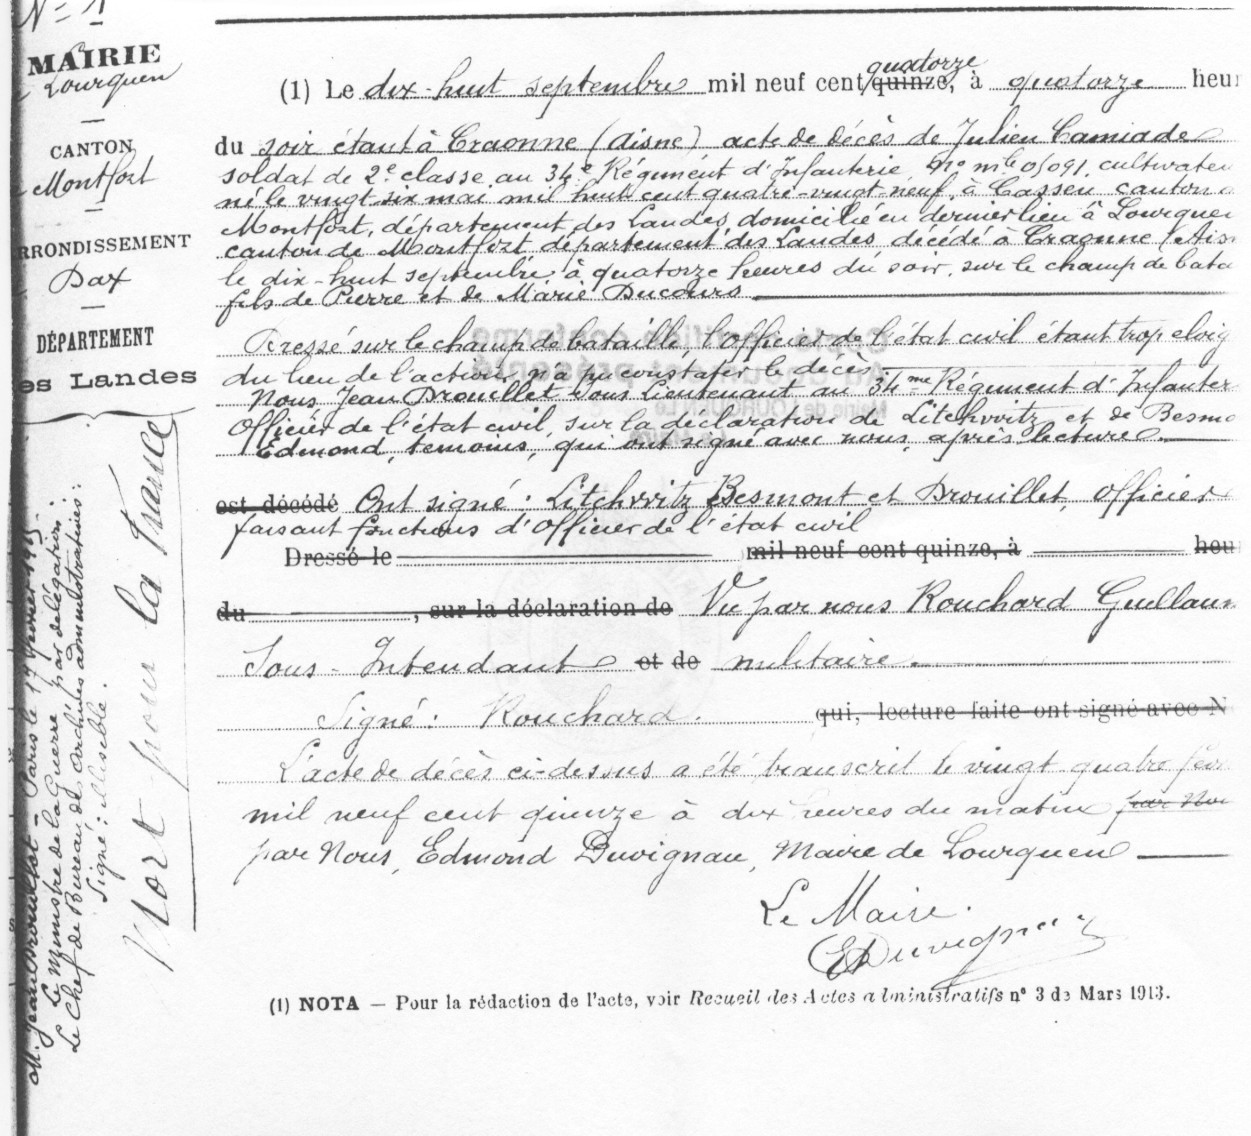 N° 1
MAIRIE
Lourquen
CANTON
Montfort
RRONDISSEMENT
Dax
DÉPARTEMENT
es Landes
quatorze
(1) Le dix-huit septembre mil neuf cent quinze, à quatorze heur
du soir étant à Craonne (Aisne) acte de décès de Julien Camiade
soldat de 2e classe au 34e Régiment d'Infanterie, No mle 05091, cultivateu
né le vingt six mai mil huit cent quatre-vingt-neuf, à Cassen canton
Montfort, département des Landes, domicilié en dernier lieu à Lourquen
canton de Montfort, département des Landes, décédé à Craonne (Ais
le dix-huit septembre à quatorze heures du soir, sur le champ de bata
fils de Pierre et de Marie Ducours
Dressé sur le champ de bataille, l'Officier de l'état civil étant trop eloig
du lieu de l'action n'a pu constater le décès.
Nous Jean Drouillet Sous Lieutenant au 34me Régiment d'Infanter
Officier de l'état civil, sur la déclaration de Litchwitz et de Besmo
Edmond, temoins, qui ont signé avec nous, après lecture
est décédé Ont signé : Litchwitz, Besmont et Drouillet, Officier
faisant fonctions d'Officier de l'état civil
Dressé le mil neuf cent quinze, à heu
du , sur la déclaration de Vu par nous Rouchard Guillaum
Sous-Intendant et de militaire
Signé : Rouchard. qui, lecture faite ont signé avec N
L'acte de décès ci-dessus a été transcrit le vingt-quatre fév
mil neuf cent quinze à dix heures du matin par Nou
par Nous, Edmond Duvignau, Maire de Lourquen
Le Maire.
EDuvignau
(1) NOTA — Pour la rédaction de l'acte, voir Recueil des Actes administratifs n° 3 de Mars 1913.
Mort pour la France
M. Jean Drouillet — Paris le 17 février 1915 —
Le Ministre de la Guerre par délégation :
Le Chef de Bureau des Archives administratives :
Signé : illisible.